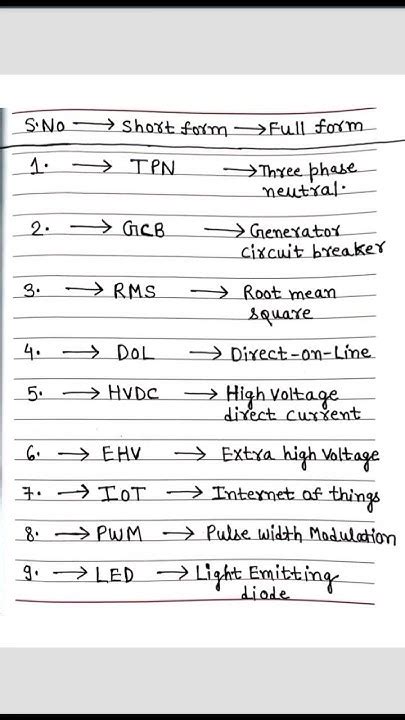 S.No → Short form → Full form
1. → TPN → Three phase
neutral.
2. → GCB → Generator
circuit breaker
3. → RMS → Root mean
square
4. → DOL → Direct-on-Line
5. → HVDC → High Voltage
direct current
6. → EHV → Extra high Voltage
7. → IoT → Internet of things
8. → PWM → Pulse width Modulation
9. → LED → Light Emitting
diode